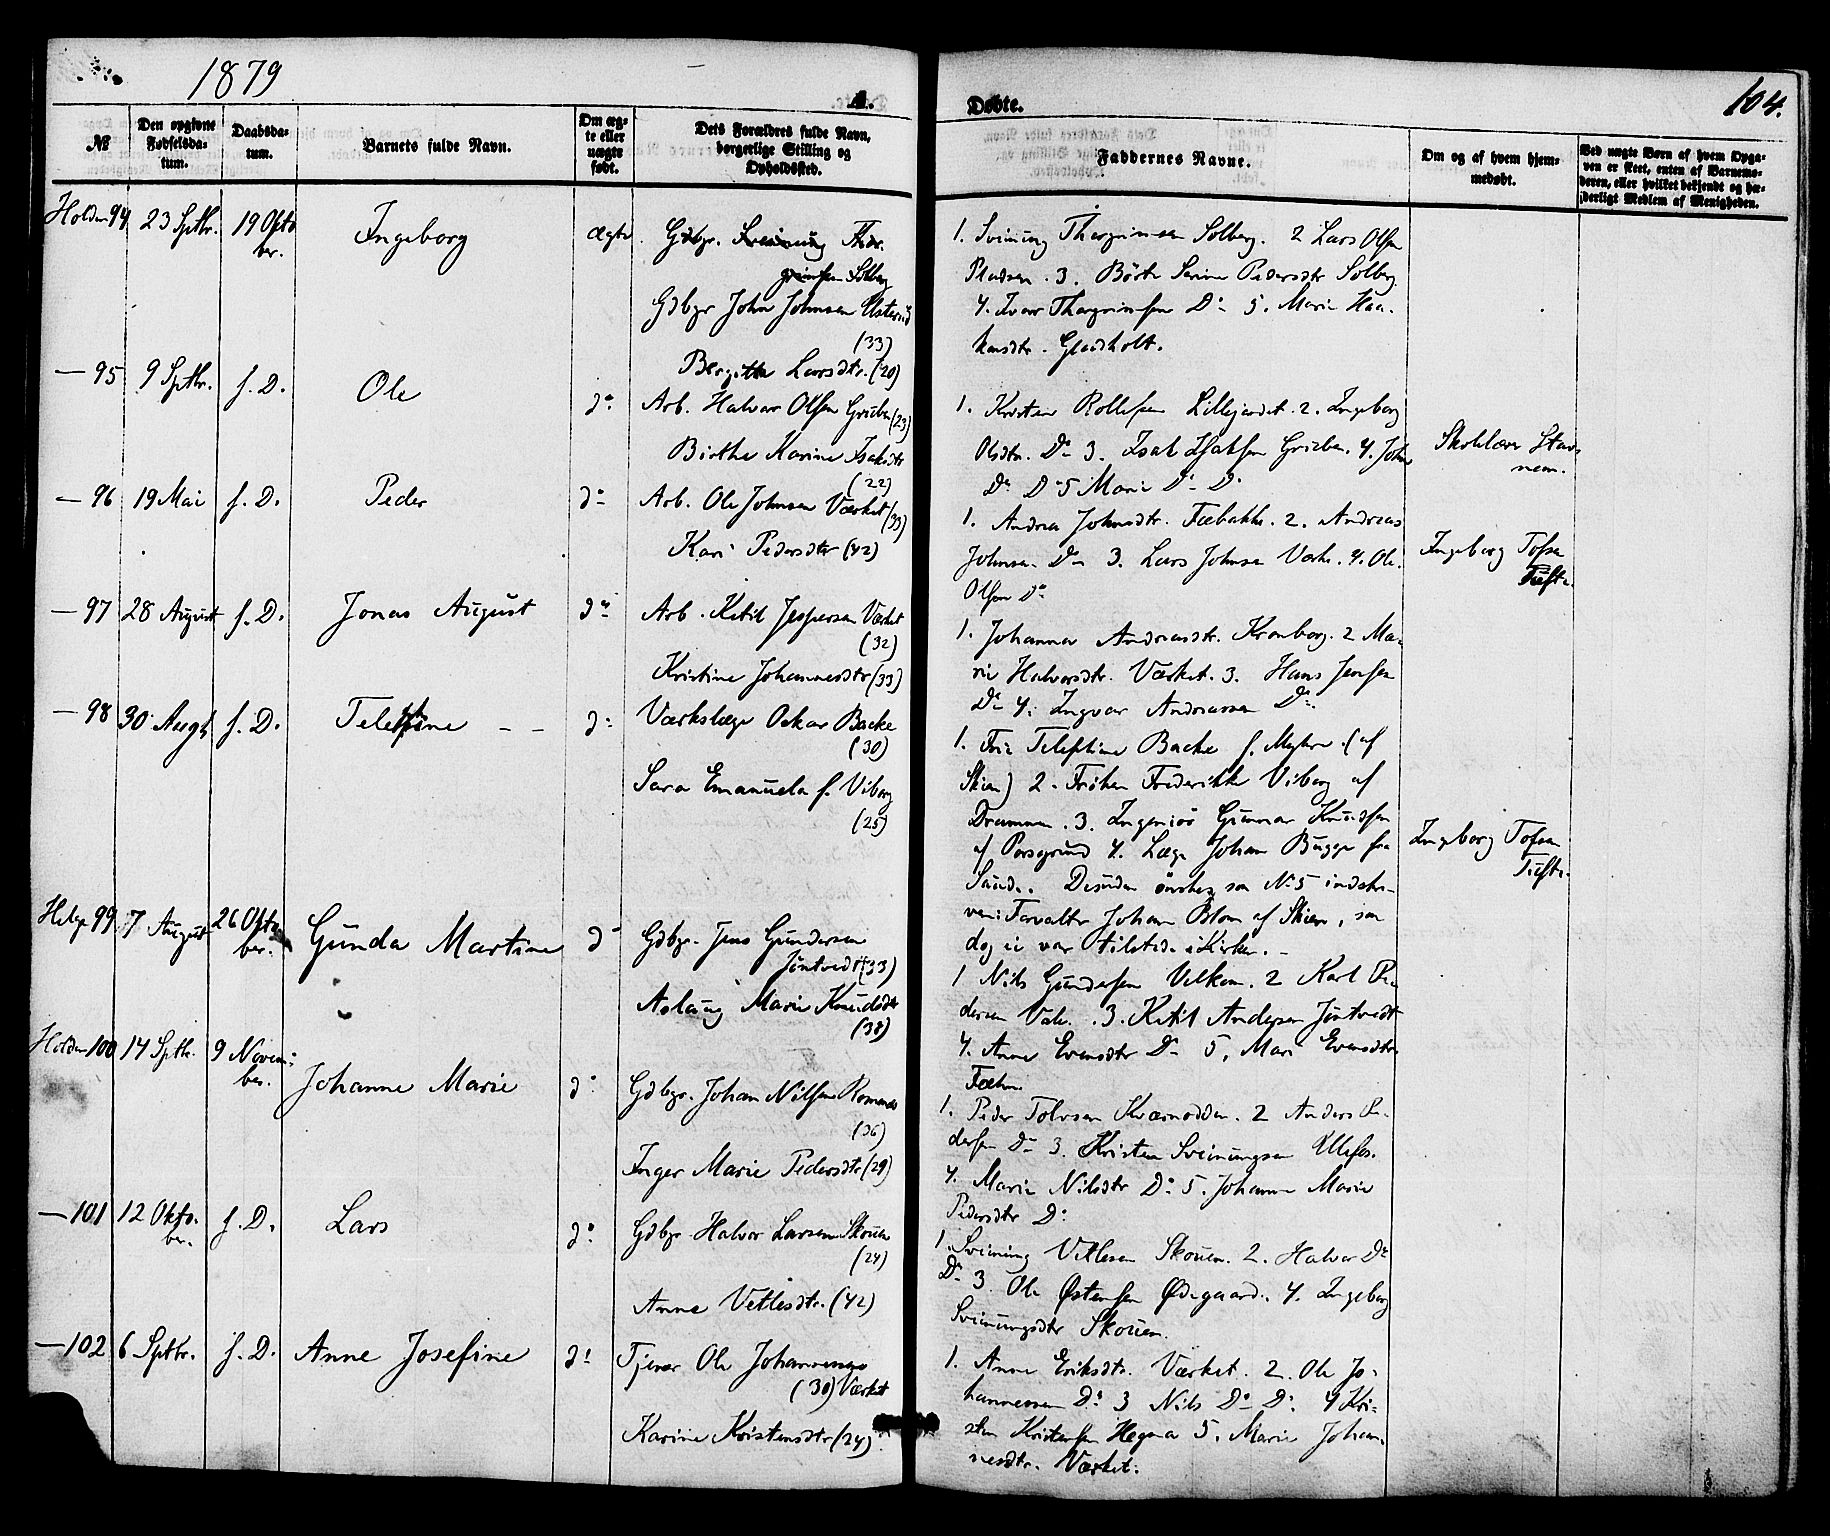 1879
104.
A.
Døbte.
№
Den opgivne
Fødselsda-
tum.
Daabsda-
tum.
Barnets fulde Navn.
Om æg-
te eller
uægte
født.
Dets Forældres fulde Navn,
borgerlige Stilling og
Opholdssted.
Faddernes Navne.
Om og af hvem hjem-
medøbt.
Ved uægte Børn af hvem Opga-
ven er skeet, enten af Barnemo-
deren, eller hvilket bekjendt og hæ-
derligt Medlem af Menigheden.
Holden 94 23 Sptbr. 19 Okto
ber.
Ingeborg
ægte
Gdbgr. Sveinung Thor
grimsen Solberg
Gdbgr John Johnsen
(33)
Bergitte Larsdtr. (20)
1. Sveinung Thorgrimsen Solberg. 2 Lars Olsen
Pladsen. 3. Børte Serine Pedersdtr Solberg
4. Ivar Thorgrimsen Do 5. Marie Haa-
konsdtr. Gladholt.
— 95 9 Sptbr. f. D.
Ole
do
Arb. Halvor Olsen Gruben (23)
Birthe Karine Isaksdtr
(22)
1. Kristen Rollefsen Lillejordet. 2. Ingeborg
Olsdtr. Do 3. Isak Isaksen Gruben. 4. John
Do Do 5 Marie Do Do
— 96 19 Mai f. D.
Peder
do
Arb. Ole Johnsen Værket (33)
Kari Pedersdtr (42)
1. Andrea Johnsdtr. Fæbakke. 2. Andreas
Johnsen Do 3. Lars Johnsen Værke. 4. Ole
Olsen Do
Ingeborg Tofsen
Tufte.
— 97 28 August f. D.
Jonas August
do
Arb. Ketil Jespersen Værket
(32)
Kristine Johannesdtr (33)
1. Johanna Andreasdtr. Kronborg. 2 Ma-
rie Halvorsdtr. Værket. 3. Hans Jensen
Do 4. Ingvar Andreassen Do.
— 98 30 Augt f. D.
Telefine — —
do
Værkslæge Oskar Backe
(30)
Sara Emanuela f. Viborg
(25)
1. Fru Telefine Backe f. Myhre (af
Skien) 2. Frøken Frederikke Viborg af
Drammen. 3. Ingeniør Gunnar Knudsen
af Porsgrund 4. Læge Johan Bugge fra
Sande. Desuden ønskes som No 5 indskre-
ven: Forvalter Johan Blom af Skien, som
dog ei var tilstede i Kirken. —
Ingeborg Tofsen
Tufte.
Helge 99 7 August 26 Okto
ber.
Gunda Martine
do
Gdbgr. Jens Gundersen
Jøntvedt (33)
Aslaug Marie Knudsdtr
(38)
1 Nils Gundersen Velkom. 2 Karl Pe-
dersen Vale. 3. Ketil Andersen Jøntvedt
4. Anne Evensdtr Do 5. Mari Evensdtr
Holden 100 14 Sptbr. 9 Novem-
ber.
Johanne Marie
do
Gdbgr. Johan Nilsen Romenæs
(36)
Inger Marie Pedersdtr (29)
1. Peder Tolvsen Kværnodden. 2 Anders Pe-
dersen Do 3. Kristen Sveinungsen Ulefos.
4. Marie Nilsdtr Do 5. Johanne Marie
Pedersdtr Do
— 101 12 Okto.
ber.
f. D.
Lars
do
Gdbgr. Halvor Larsen Skouen
(24)
Anne Vetlesdtr. (42)
1. Sveinung Vetlesen Skouen. 2. Halvor Do
Do 3 Ole Østensen Ødegaard. 4. Ingeborg
Sveinungsdtr Skouen.
— 102 6 Sptbr. f. D.
Anne Josefine
do
Tjener Ole Johannessen
(30) Værket
Karine Kristensdtr (24)
1. Anne Eriksdtr. Værket. 2. Ole Jo-
hannessen Do 3 Nils Do Do. 4 Kri-
sten Kristensen Hegna 5. Marie Johan-
nesdtr. Værket.